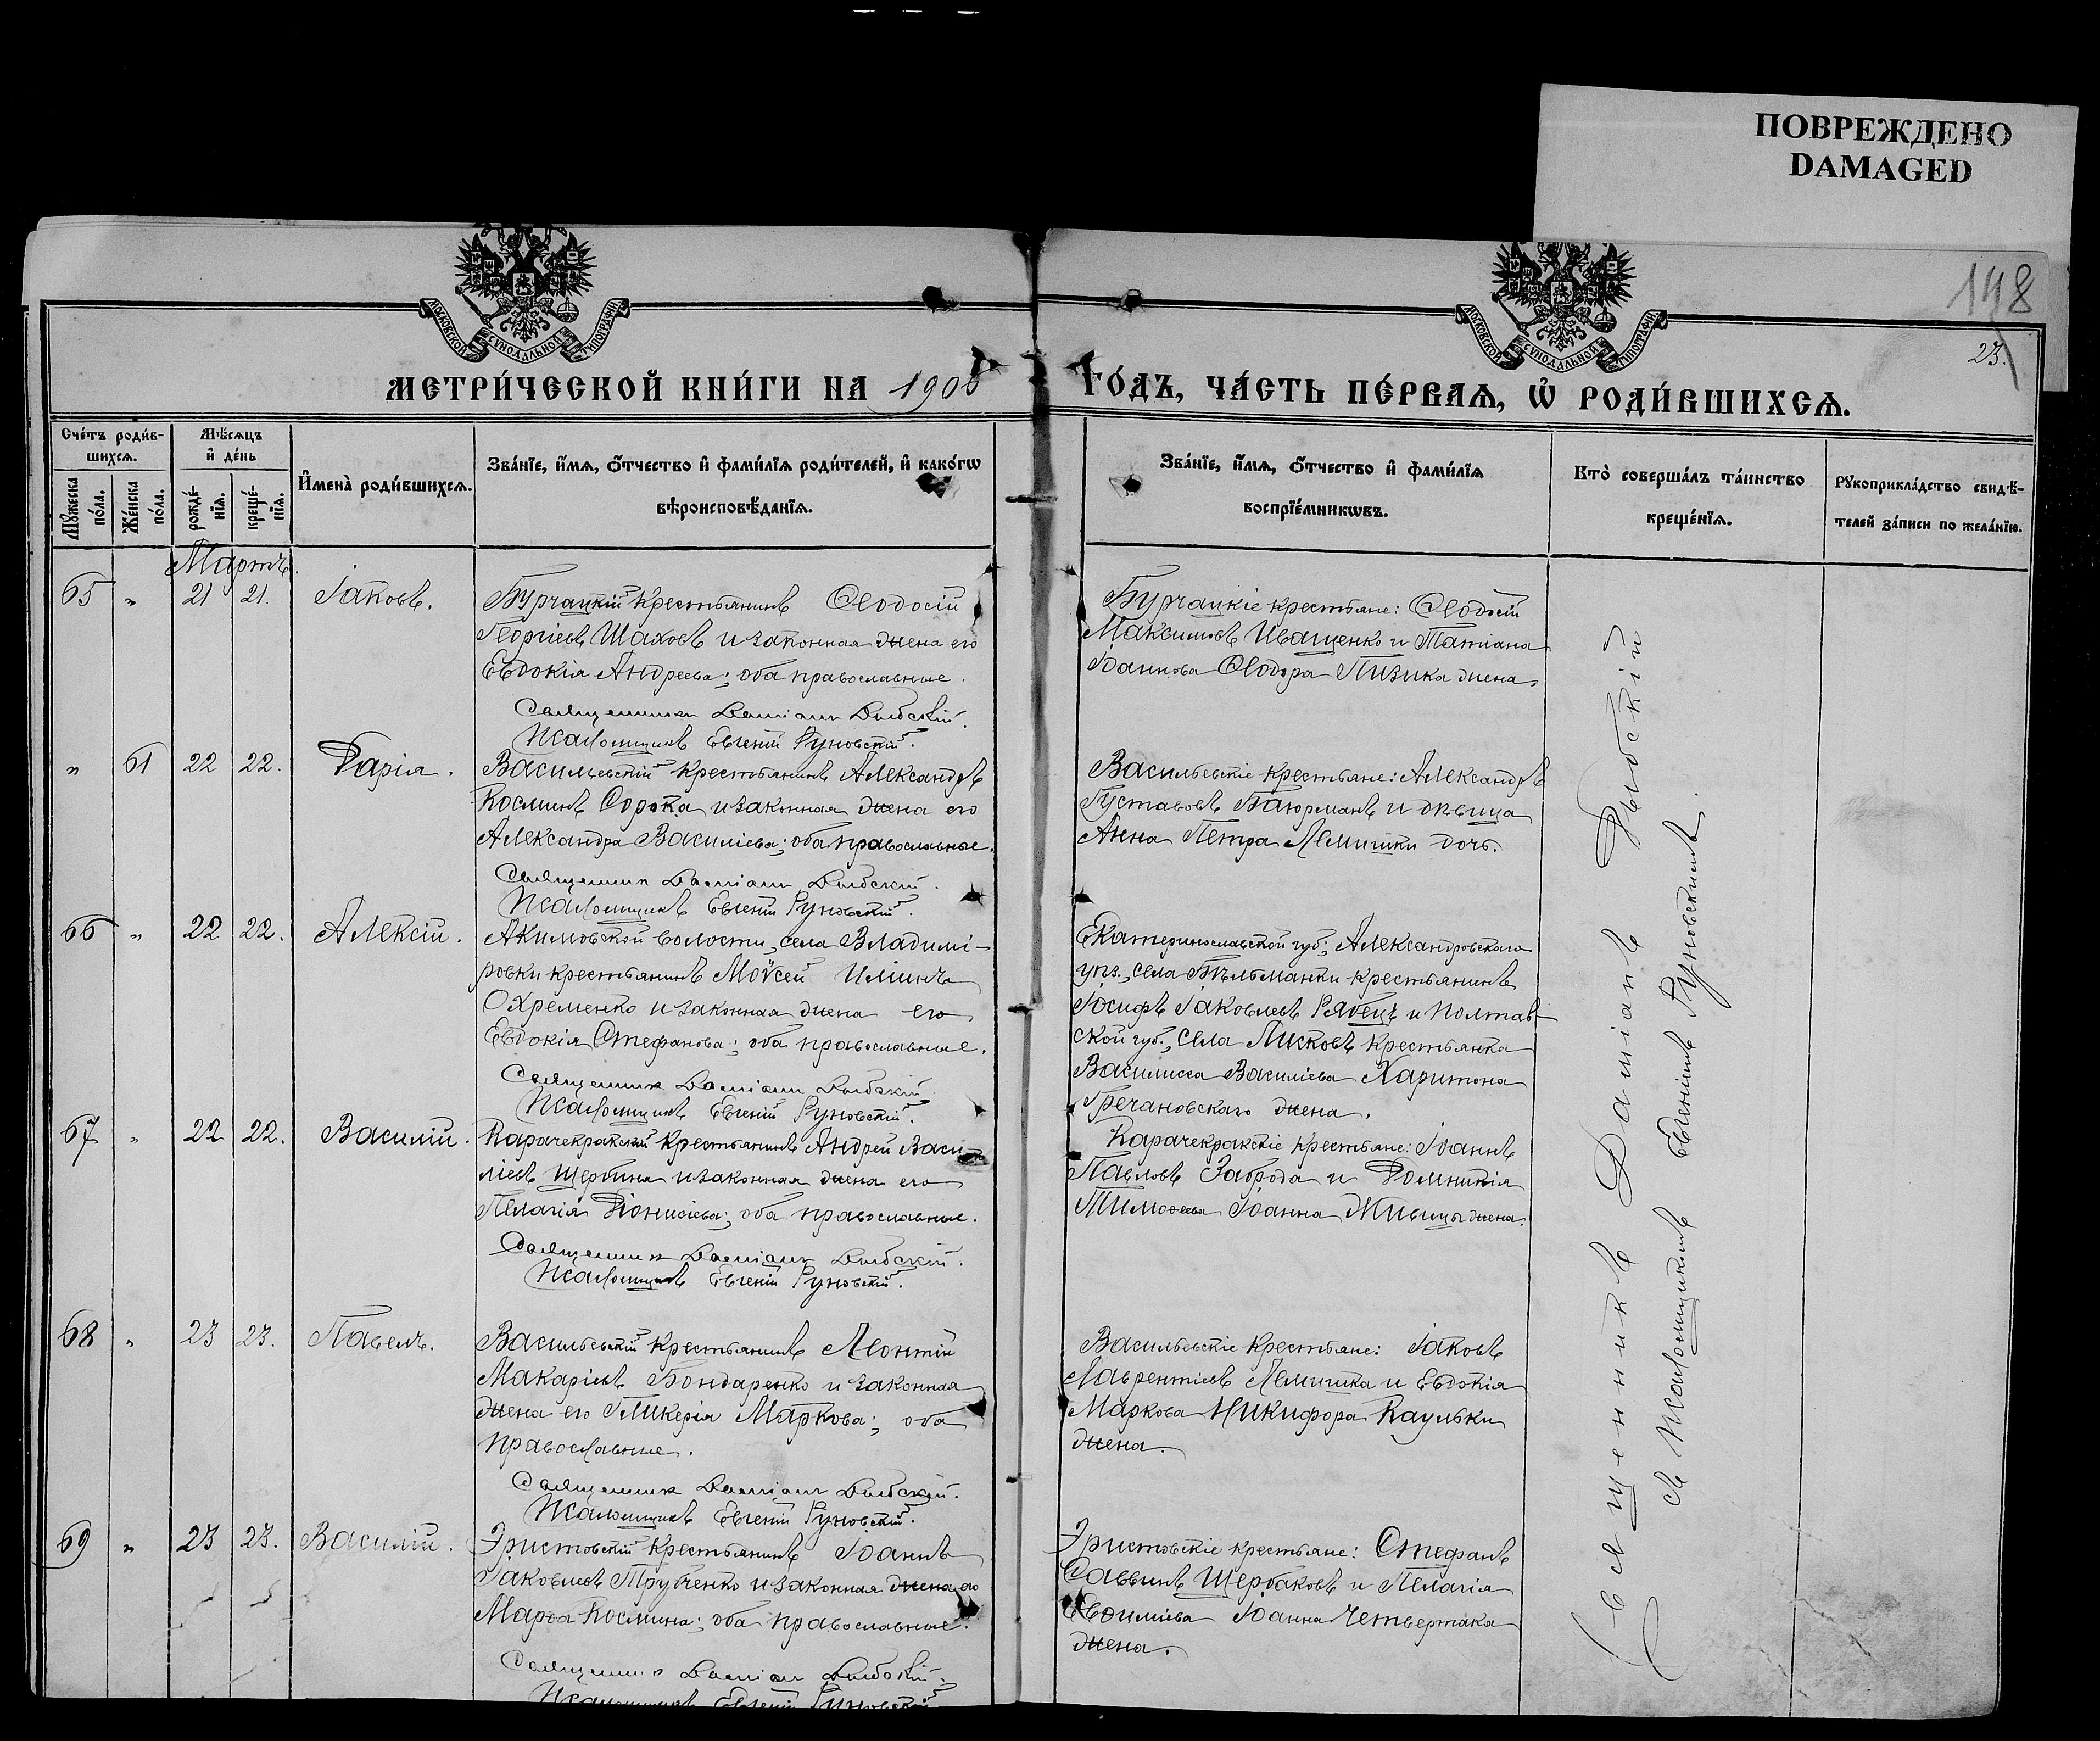 ПОВРЕЖДЕНО
DAMAGED
148
23.
МОСКОВСКОЙ СѴНОДАЛЬНОЙ ТИПОГРАФІИ
МОСКОВСКОЙ СѴНОДАЛЬНОЙ ТИПОГРАФІИ
МЕТРИ́ЧЕСКОЙ КНИ́ГИ НА 1908 ГО́ДЪ, ЧА́СТЬ ПЕ́РВАѦ, Ѡ҆ РОДИ́ВШИХСѦ.
Сче́тъ роди́в-
шихсѧ.
Мѣ́сѧцъ
и҆ де́нь
Мꙋ́жеска
по́ла.
Же́нска
по́ла.
рожде́-
нїѧ.
креще́-
нїѧ.
И҆мена̀ роди́вшихсѧ.
Зва́нїе, и҆́мѧ, ѻ҆́тчество и҆ фами́лїѧ роди́телей, и҆ како́гѡ
вѣроисповѣ́данїѧ.
Зва́нїе, и҆́мѧ, ѻ҆́тчество и҆ фами́лїѧ
воспрїе́мникѡвъ.
Кто̀ соверша́лъ та́инство
креще́нїѧ.
Рꙋкоприкла́дство свидѣ́-
телей за́писи по жела́нїю.
Мартъ.
65 " 21 21. Іаковъ.
Бурчацкій крестьянинъ Ѳеодосій
Георгіевъ Шаховъ и законная жена его
Евдокія Андреева; оба православные.
Священникъ Даміанъ Дыбскій.
Псаломщикъ Евгеній Руновскій.
Бурчацкіе крестьяне: Ѳеодосій
Максимовъ Иващенко и Татіана
Іоаннова Ѳеодора Пизика жена.
" 61 22 22. Дарія.
Васильевскій крестьянинъ Александръ
Косминъ Сорока и законная жена его
Александра Василіева; оба православные.
Священникъ Даміанъ Дыбскій.
Псаломщикъ Евгеній Руновскій.
Васильевскіе крестьяне: Александръ
Густавовъ Баюрманъ и дѣвица
Анна Петра Лемишки дочь.
66 " 22 22. Алексій.
Акимовской волости, села Владимі-
ровки крестьянинъ Моѵсей Иліинъ
Охременко и законная жена его
Евдокія Стефанова; оба православные.
Священникъ Даміанъ Дыбскій.
Псаломщикъ Евгеній Руновскій.
Екатеринославской губ., Александровскаго
уѣз., села Бѣльманки крестьянинъ
Іосифъ Іаковлевъ Рябецъ и Полтав-
ской губ., села Лисковъ крестьянка
Василисса Василіева Харитона
Гречановскаго жена.
67 " 22 22. Василій.
Карачекракскій крестьянинъ Андрей Васи-
ліевъ Щербина и законная жена его
Пелагія Діонисіева; оба православные.
Священникъ Даміанъ Дыбскій.
Псаломщикъ Евгеній Руновскій.
Карачекракскіе крестьяне: Іоаннъ
Павловъ Заброда и Домникія
Тимоѳеева Іоанна Живицы жена.
68 " 23 23. Павелъ.
Васильевскій крестьянинъ Леонтій
Макаріевъ Бондаренко и законная
жена его Гликерія Маркова; оба
православные.
Священникъ Даміанъ Дыбскій.
Псаломщикъ Евгеній Руновскій.
Васильевскіе крестьяне: Іаковъ
Лаврентіевъ Лемишка и Евдокія
Маркова Никифора Каульки
жена.
69 " 23 23. Василій.
Эристовскій крестьянинъ Іоаннъ
Іаковлевъ Трубченко и законная жена его
Марѳа Космина; оба православные.
Священникъ Даміанъ Дыбскій.
Псаломщикъ Евгеній Руновскій
Эристовскіе крестьяне: Стефанъ
Саввинъ Щербаковъ и Пелагія
Евѳиміева Іоанна Четвертака
жена.
Священникъ Даміанъ Дыбскій
съ Псаломщикомъ Евгеніемъ Руновскимъ.